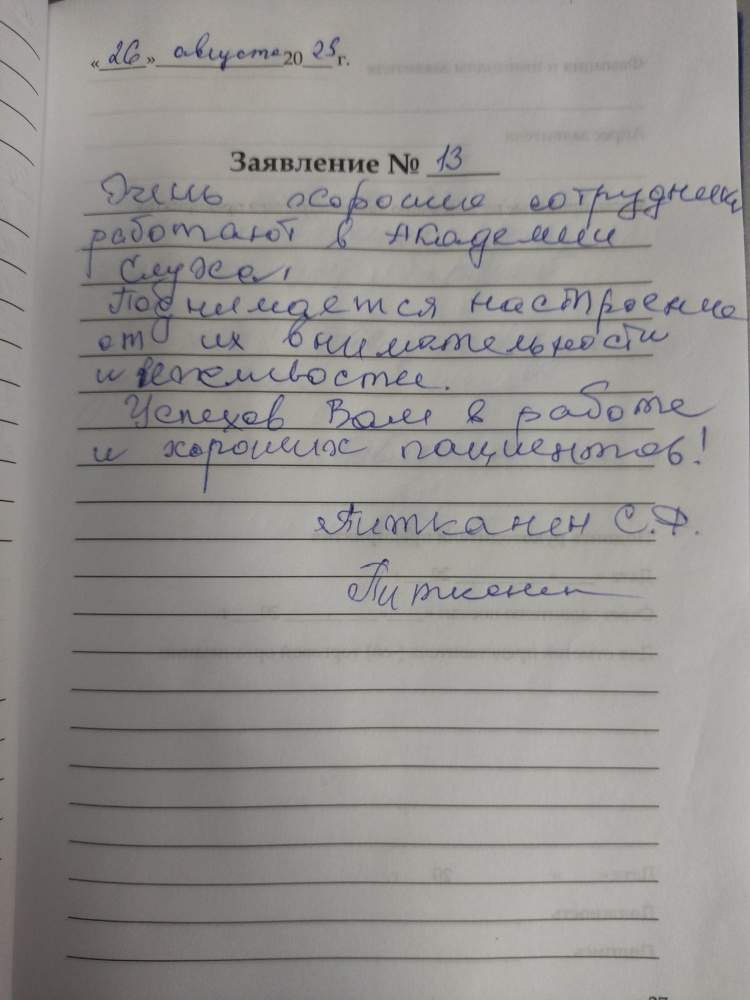 «26» августа 2025 г.
Заявление № 13
Очень хорошие сотрудники
работают в Академии
Слуха,
Поднимается настроение
от их внимательности
и вежливостее.
Успехов Вам в работе
и хороших пациентов!
Питканен С.Ф.
Питканен